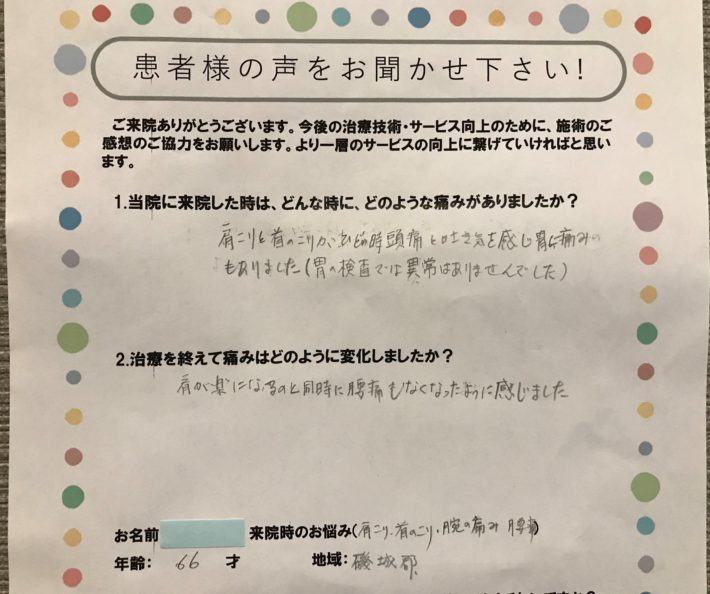 患者様の声をお聞かせ下さい!
ご来院ありがとうございます。今後の治療技術・サービス向上のために、施術のご
感想のご協力をお願いします。より一層のサービスの向上に繋げていければと思い
ます。
1.当院に来院した時は、どんな時に、どのような痛みがありましたか？
肩こりと首のこりがひどい時頭痛と吐き気を感じ胃に痛みの
もありました(胃の検査では異常はありませんでした)
2.治療を終えて痛みはどのように変化しましたか？
肩が楽になるのと同時に腰痛もなくなったように感じました
お名前 来院時のお悩み(肩こり、首のこり・腕の痛み 腰痛)
年齢： 66 才 地域：磯城郡